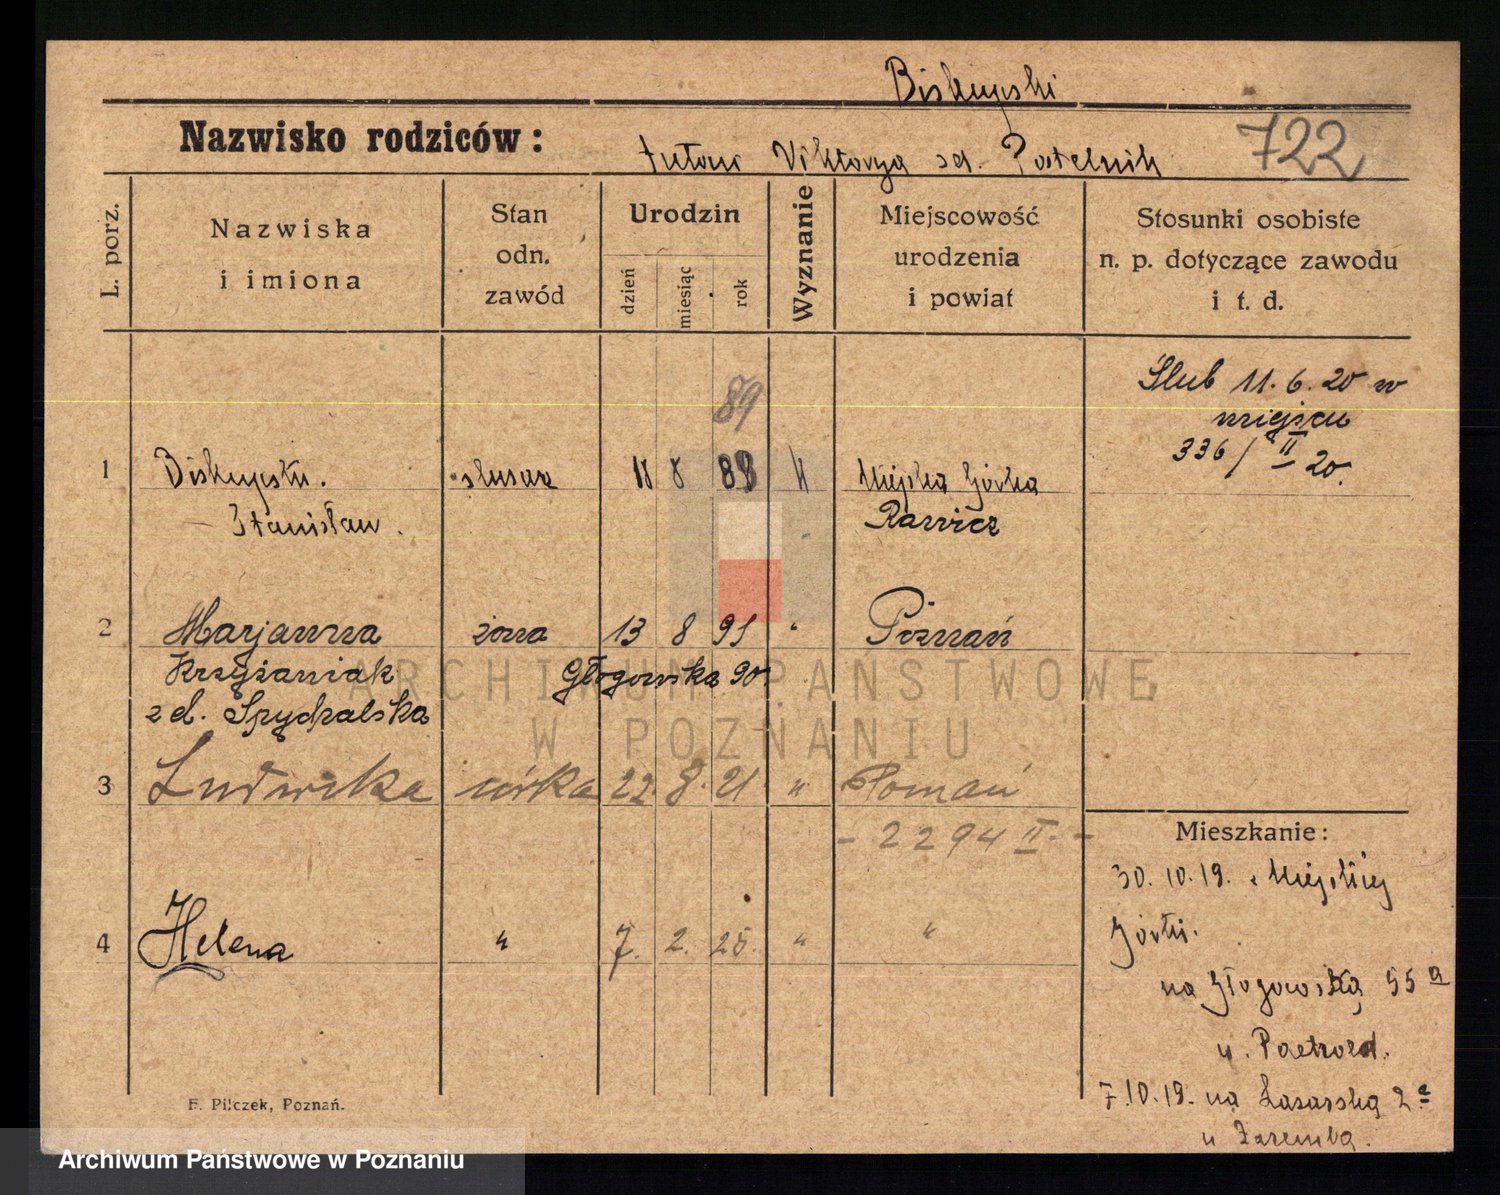 Biskupski
Nazwisko rodziców: Antoni Viktorya zd. Patelnik 722
L. porz. Nazwiska i imiona Stan odn. zawód Urodzin dzień miesiąc rok Wyznanie Miejscowość urodzenia i powiat Stosunki osobiste n. p. dotyczące zawodu i t. d.
Ślub 11. 6. 20 w
89
miejscu
336 / II 20.
1 Biskupski. ślusarz 18 8 88 K Miejska Górka
Stanisław. Rawicz
2 Marjanna żona 13 8 91 " Poznań
Krzyżaniak Głogowska 90.
zd. Spychalska
ARCHIWUM PAŃSTWOWE
W POZNANIU
3 Ludwika córka 22. 8. 21 " Poznań
- 2294 II. -
Mieszkanie:
30. 10. 19. z Miejskiej
Górki.
4 Helena " 7. 2. 25. " "
na Głogowską 55 a
u.
7.10.19. na Łazarską 2 a
u Zaremba.
F. Pilczek, Poznań.
Archiwum Państwowe w Poznaniu